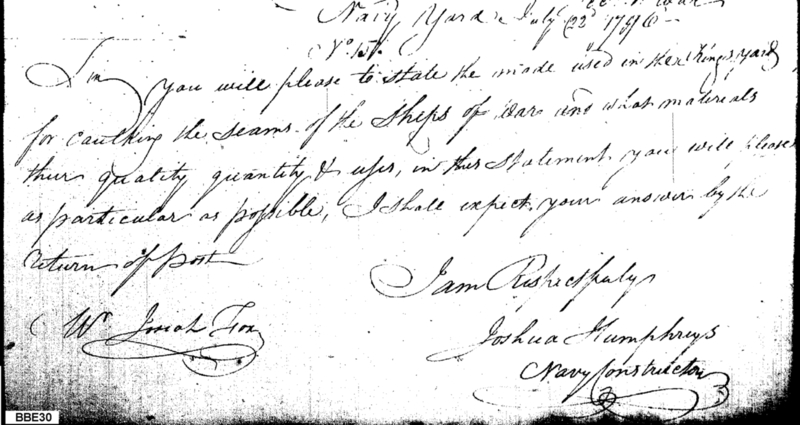 Navy Yard July 22d 1796
Sir you will please to state the mode used in the Kings yard
for caulking the seams of the Ships of War and what materials
their quality quantity & uses, in this statement you will please
as particular as possible, I shall expect your answer by the
return of post
I am Respectfuly
Mr Josiah Fox
Joshua Humphreys
Navy Constructor
BBE30